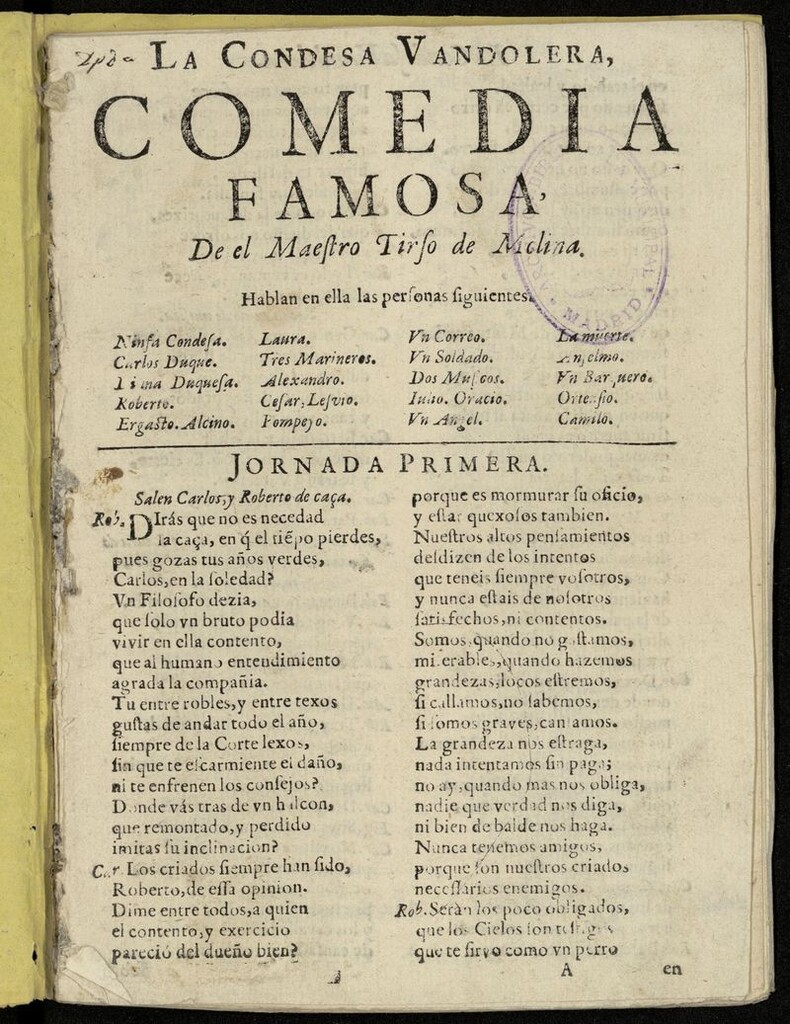 LA CONDESA VANDOLERA,
COMEDIA
FAMOSA,
De el Maeſtro Tirſo de Molina.
Hablan en ella las perſonas ſiguientes.
MADRID
Ninfa Condeſa.
Carlos Duque.
Diana Duqueſa.
Roberto.
Ergaſto. Alcino.
Laura.
Tres Marineros.
Alexandro.
Ceſar, Leſvio.
Pompeyo.
Vn Correo.
Vn Soldado.
Dos Muſicos.
Iulio. Oracio.
Vn Angel.
La muerte.
Anſelmo.
Vn Barquero.
Ortenſio.
Camilo.
JORNADA PRIMERA.
Salen Carlos, y Roberto de caça.
Rob. DIrás que no es necedad
la caça, en q̃ el tiẽpo pierdes,
pues gozas tus años verdes,
Carlos, en la ſoledad?
Vn Filoſofo dezia,
que ſolo vn bruto podia
vivir en ella contento,
que al humano entendimiento
agrada la compañia.
Tu entre robles, y entre texos
guſtas de andar todo el año,
ſiempre de la Corte lexos,
ſin que te eſcarmiente el daño,
ni te enfrenen los conſejos?
Donde vás tras de vn halcon,
que remontado, y perdido
imitas ſu inclinacion?
Car. Los criados ſiempre han ſido,
Roberto, de eſſa opinion.
Dime entre todos, a quien
el contento, y exercicio
pareció del dueño bien?
porque es mormurar ſu oficio,
y eſtar quexoſos tambien.
Nueſtros altos penſamientos
deſdizen de los intentos
que teneis ſiempre voſotros,
y nunca eſtais de noſotros
ſatisfechos, ni contentos.
Somos, quando no gaſtamos,
miſerables, quando hazemos
grandezas, locos eſtremos,
ſi callamos, no ſabemos,
ſi ſomos graves, canſamos.
La grandeza nos eſtraga,
nada intentamos ſin paga;
no ay, quando mas nos obliga,
nadie que verdad nos diga,
ni bien de balde nos haga.
Nunca tenemos amigos,
porque ſon nueſtros criados
neceſſarios enemigos.
Rob. Serán los poco obligados,
que los Cielos ſon teſtigos
que te ſirvo como vn perro
A en